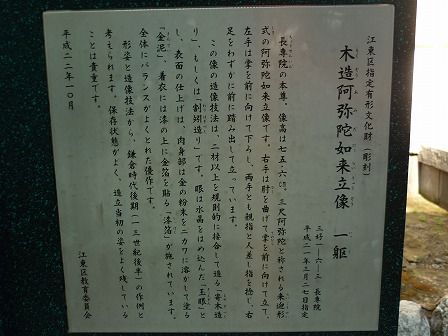 江東区指定有形文化財(彫刻)
木造阿弥陀如来立像 一躯
三好一―六―三 長専院
平成二一年三月二七日指定
長専院の本尊。像高は七五・六㎝。三尺阿弥陀と称される来迎形
式の阿弥陀如来立像です。右手は肘を曲げて掌を前に向けて立て、
左手は掌を前に向けて下ろし、両手とも親指と人差し指を捻じ、右
足をわずかに前に踏み出して立っています。
この像の造像技法は、二材以上を規則的に接合して造る「寄木造
り」、もしくは「割矧造り」です。眼は水晶をはめ込んだ「玉眼」と
し、表面の仕上げは、肉身部は金の粉末をニカワに溶かして塗る
「金泥」、着衣には漆の上に金箔を貼る「漆箔」が施されています。
全体にバランスがよくとれた優作です。
形姿と造像技法から、鎌倉時代後期(一三世紀後半)の作例と
考えられます。保存状態がよく、造立当初の姿をよく残している
ことは貴重です。
平成二二年一〇月
江東区教育委員会